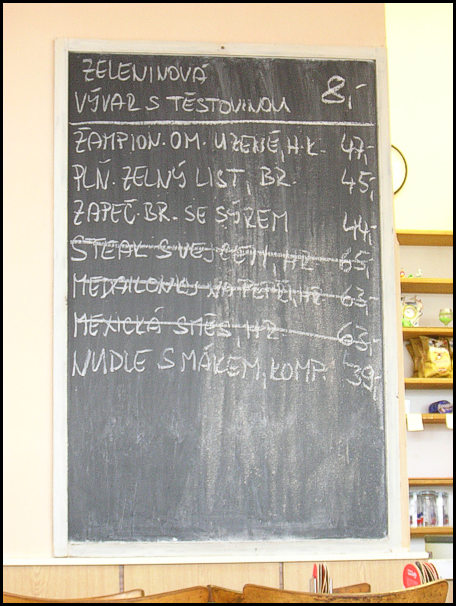 ZELENINOVÁ
VÝVAR S TĚSTOVINOU 8,-
ŽAMPION. OM. UZENÉ, H.K. 47,-
PLŇ. ZELNÝ LIST, BR. 45,-
ZAPEČ. BR. SE SÝREM 44,-
STEAK S VEJCEM, HR 65,-
MEDAILONKY NA PEPŘI, HR 63,-
MEXICKÁ SMĚS, HR 63,-
NUDLE S MÁKEM, KOMP. 39,-